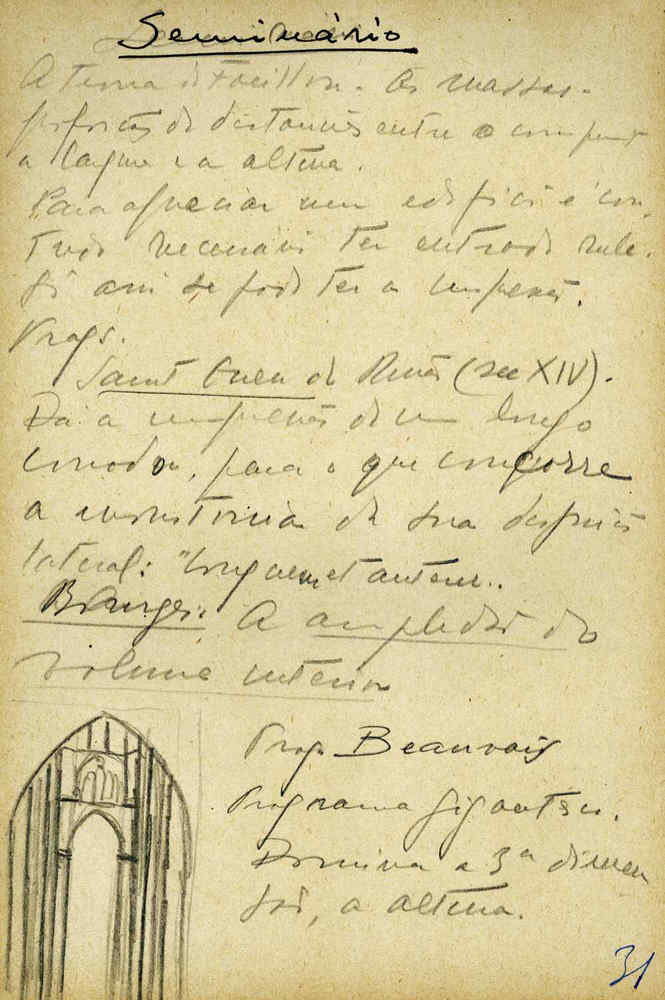 Seminário
A teoria de Focillon. As massas.
de distancias entre o comprimento
a largura e a altura.
Para apreciar um edificio é con
tudo necessario ter entrado nele.
Só assi se pode ter a impressão.
Progr.
Saint Ouen de Ruão (sec XIV).
Dá a impressão de um longo
corredor, para o que concorre
a monotonia da sua disposição
lateral: "Longueur et hauteur".
Bourges. A amplidão do
volume interior
Progr. Beauvais
Programa gigantesco.
Domina a 3ª dimen
são, a altura.
31